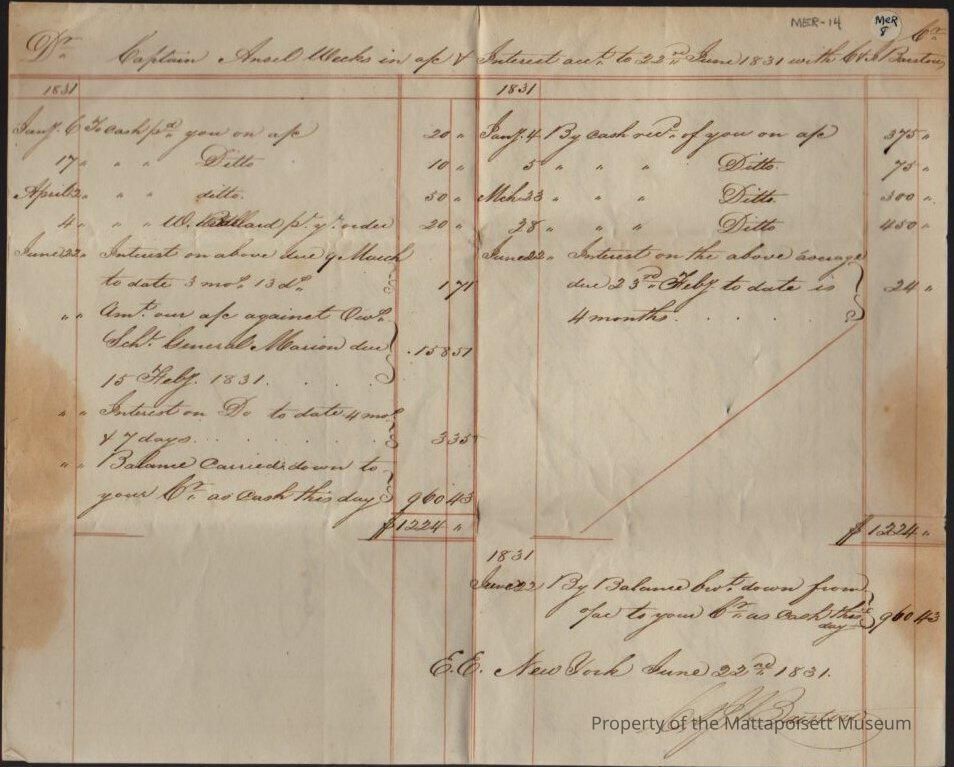 MER-14
MER
8
Dr. Captain Ansel Weeks in a/c & Interest acct. to 22nd June 1831 with C & J Barstow Cr.
1831
Jany. 6 To cash pd. you on a/c 20 "
17 " " " Ditto 10 "
April 2 " " " ditto. 50 "
4 " " " W. Willard pr. yr. order 20 "
June 22 " Interest on above due 9 March
to date 3 mos. 13 ds. 1 71
" " Amt. our a/c against Own.
Schr. General Marion due 158 51
15 Feby. 1831. . . . .
" " Interest on Do to date 4 mos.
& 7 days. . . . . . . 3 35
" " Balance Carried down to
your Cr. as Cash this day 960 43
$1224 "
1831
Jany. 4 By cash recd. of you on a/c 375 "
5 " " " Ditto. 75 "
Mch 23 " " " Ditto 300 "
28 " " " Ditto 450 "
June 22 " Interest on the above average
due 23rd Feby. to date is 24 "
4 months. . . . .
$1224 "
1831
June 22 By Balance brot. down from
a/c to your Cr. as Cash this
day 960 43
E.E. New York June 22nd 1831.
C & J Barstow
Property of the Mattapoisett Museum